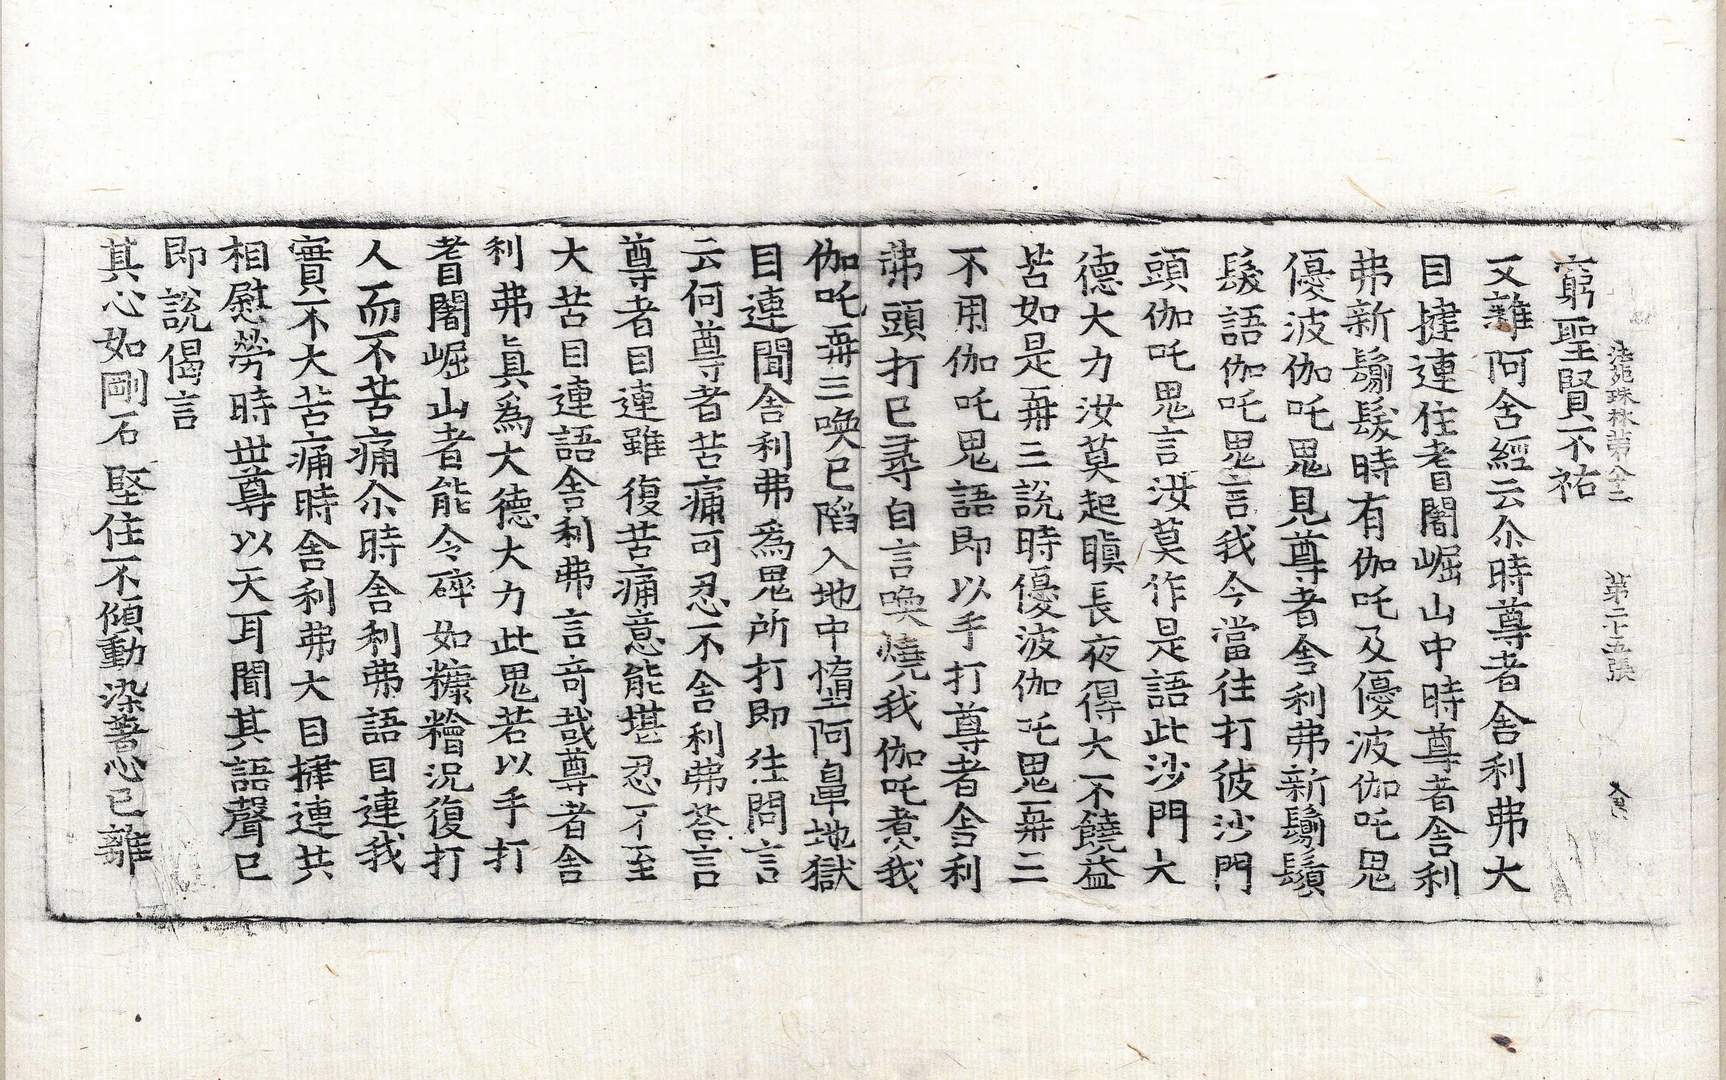 法苑珠林第八十二 第二十五張
窮聖賢不祐
又雜阿含經云尒時尊者舍利弗大
目揵連住耆闍崛山中時尊者舍利
弗新鬀髮時有伽吒及優波伽吒鬼
優波伽吒鬼見尊者舍利弗新鬀鬚
髮語伽吒鬼言我今當往打彼沙門
頭伽吒鬼言汝莫作是語此沙門大
德大力汝莫起瞋長夜得大不饒益
苦如是再三說時優波伽吒鬼再三
不用伽吒鬼語即以手打尊者舍利
弗頭打已尋自言喚燒我伽吒煮我
伽吒再三喚已陷入地中墮阿鼻地獄
目連聞舍利弗為鬼所打即往問言
云何尊者苦痛可忍不舍利弗荅言
尊者目連雖復苦痛意能堪忍不至
大苦目連語舍利弗言奇哉尊者舍
利弗真為大德大力此鬼若以手打
耆闍崛山者能令碎如糠糩況復打
人而不苦痛尒時舍利弗語目連我
實不大苦痛時舍利弗大目揵連共
相慰勞時世尊以天耳聞其語聲已
即說偈言
其心如剛石 堅住不傾動染著心已離